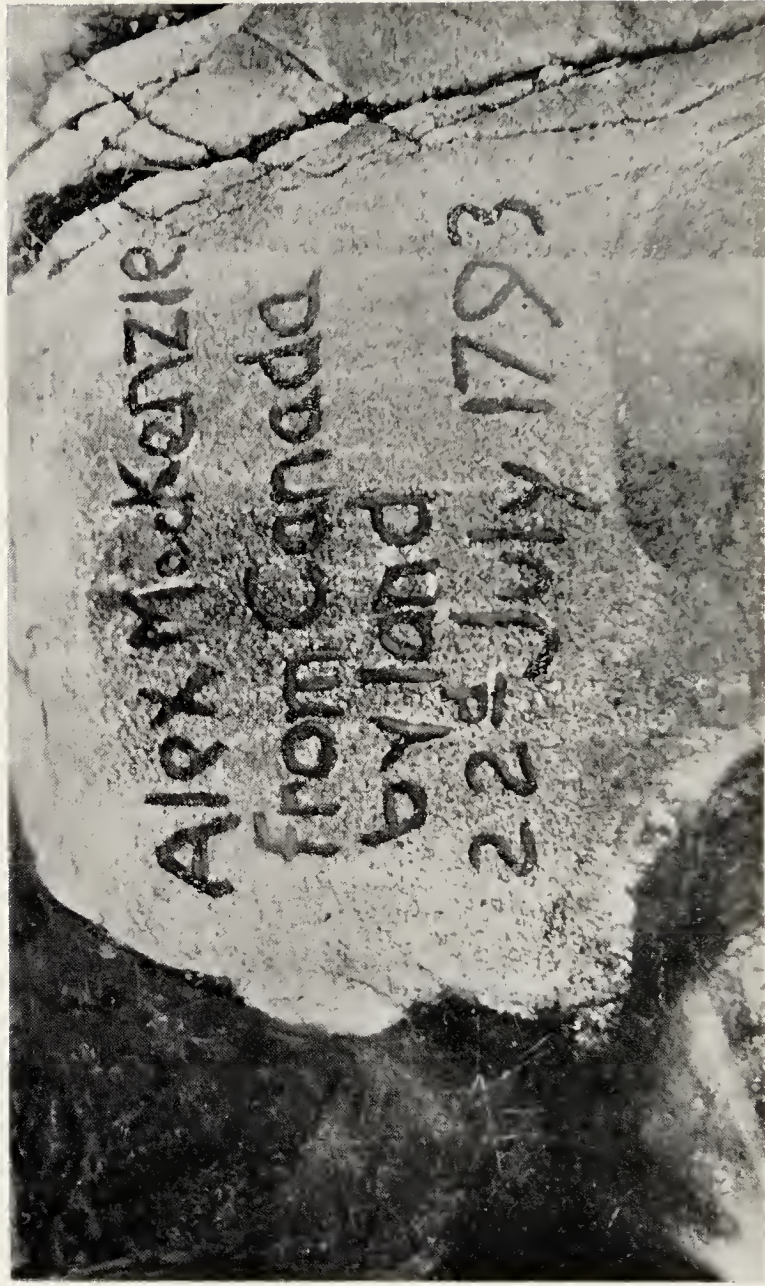 Alex MacKenzie
from Canada
by land
22d July 1793